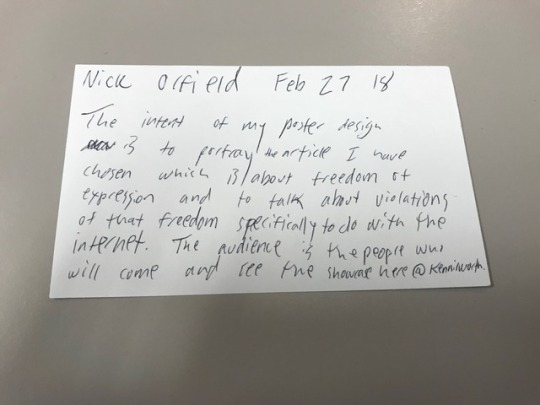 Nick Orfield Feb 27 18
The intent of my poster design
is to portray the article I have
chosen which is about freedom of
expression and to talk about violations
of that freedom specifically to do with the
internet. The audience is the people who
will come and see the showcase here @ Kenilworth.